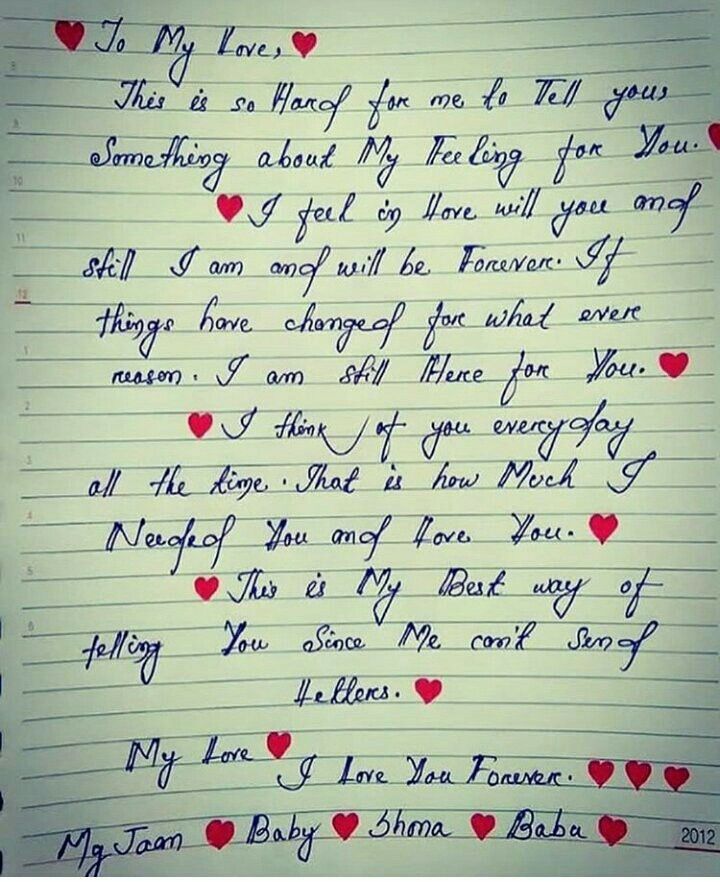 To My Love,
This is so Hard for me to Tell you,
Something about My Feeling for You.
I feel in Love will you and
still I am and will be Forever. If
things have changed for what ever
reason. I am still Here for You.
I think of you everyday
all the time. That is how Much I
Needed You and Love You.
This is My Best way of
telling You Since Me can't Send
Letters.
My Love
I Love You Forever.
My Jaan Baby Shona Babu
2012